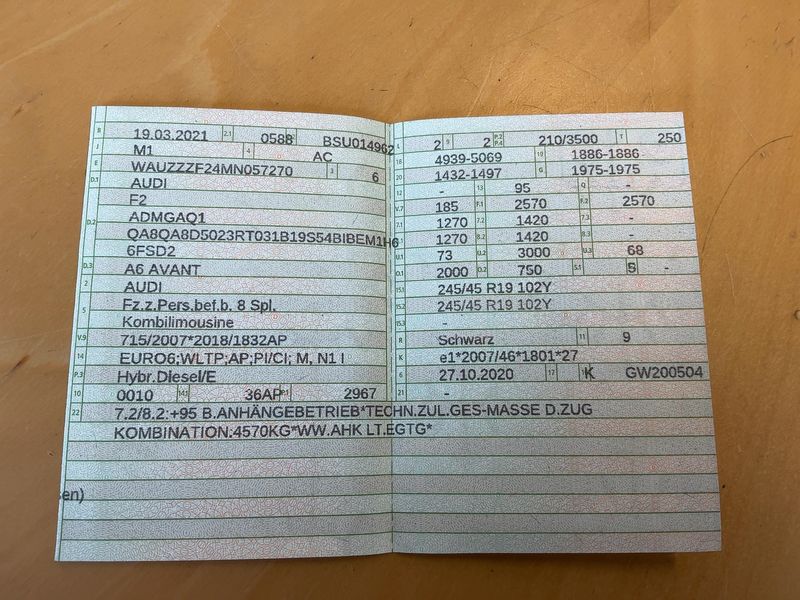 B 19.03.2021 2.1 0588 BSU014962
J M1 4 AC
E WAUZZZF24MN057270 3 6
D.1 AUDI
F2
D.2 ADMGAQ1
QA8QA8D5023RT031B19S54BIBEM1H6
6FSD2
D.3 A6 AVANT
2 AUDI
5 Fz.z.Pers.bef.b. 8 Spl.
Kombilimousine
V.9 715/2007*2018/1832AP
14 EURO6;WLTP;AP;PI/CI; M, N1 I
P.3 Hybr.Diesel/E
10 0010 14.1 36AP P.1 2967
22 7.2/8.2:+95 B.ANHÄNGEBETRIEB*TECHN.ZUL.GES-MASSE D.ZUG
KOMBINATION:4570KG*WW.AHK LT.EGTG*
en)
L 2 9 2 P.2 P.4 210/3500 T 250
18 4939-5069 19 1886-1886
20 1432-1497 G 1975-1975
12 - 13 95 Q -
V.7 185 F.1 2570 F.2 2570
7.1 1270 7.2 1420 7.3 -
8.1 1270 8.2 1420 8.3 -
U.1 73 U.2 3000 U.3 68
O.1 2000 O.2 750 S.1 5 -
15.1 245/45 R19 102Y
15.2 245/45 R19 102Y
15.3 -
R Schwarz 11 9
K e1*2007/46*1801*27
6 27.10.2020 17 K GW200504
21 -